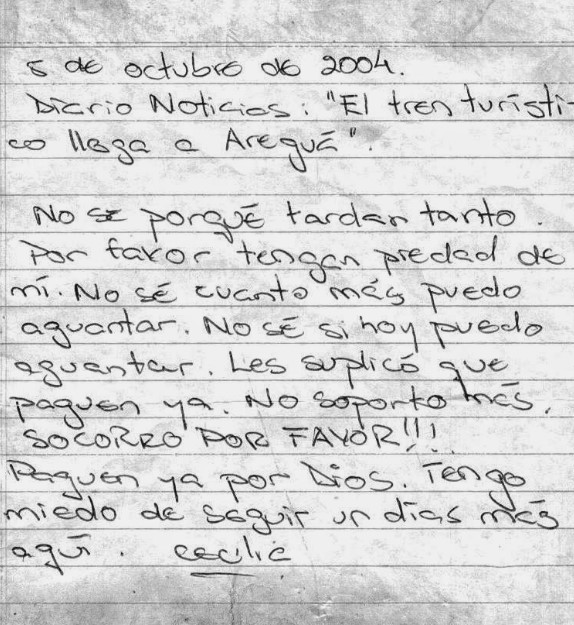 5 de octubre de 2004.
Diario Noticias: "El tren turísti-
co llega a Areguá".
No se porqué tardan tanto.
Por favor tengan piedad de
mí. No sé cuanto más puedo
aguantar. No sé si hoy puedo
aguantar. Les suplicó que
paguen ya. No soporto más.
SOCORRO POR FAVOR!!!
Paguen ya por Dios. Tengo
miedo de seguir un días más
aquí. cecilia